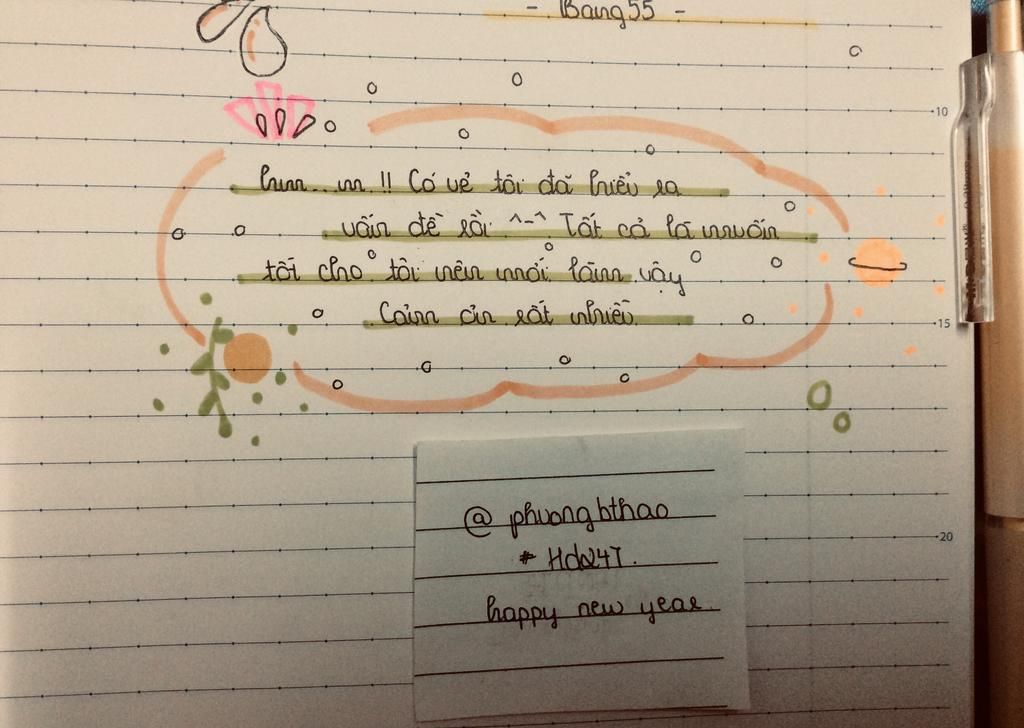 - Bang55 -
10
hmm...m !! Có vẻ tôi đã hiểu ra
vấn đề rồi ^-^ Tất cả là muốn
tốt cho tôi nên mới làm vậy
Cảm ơn rất nhiều
15
20
@ phuongbthao
# Hdz247.
happy new year.